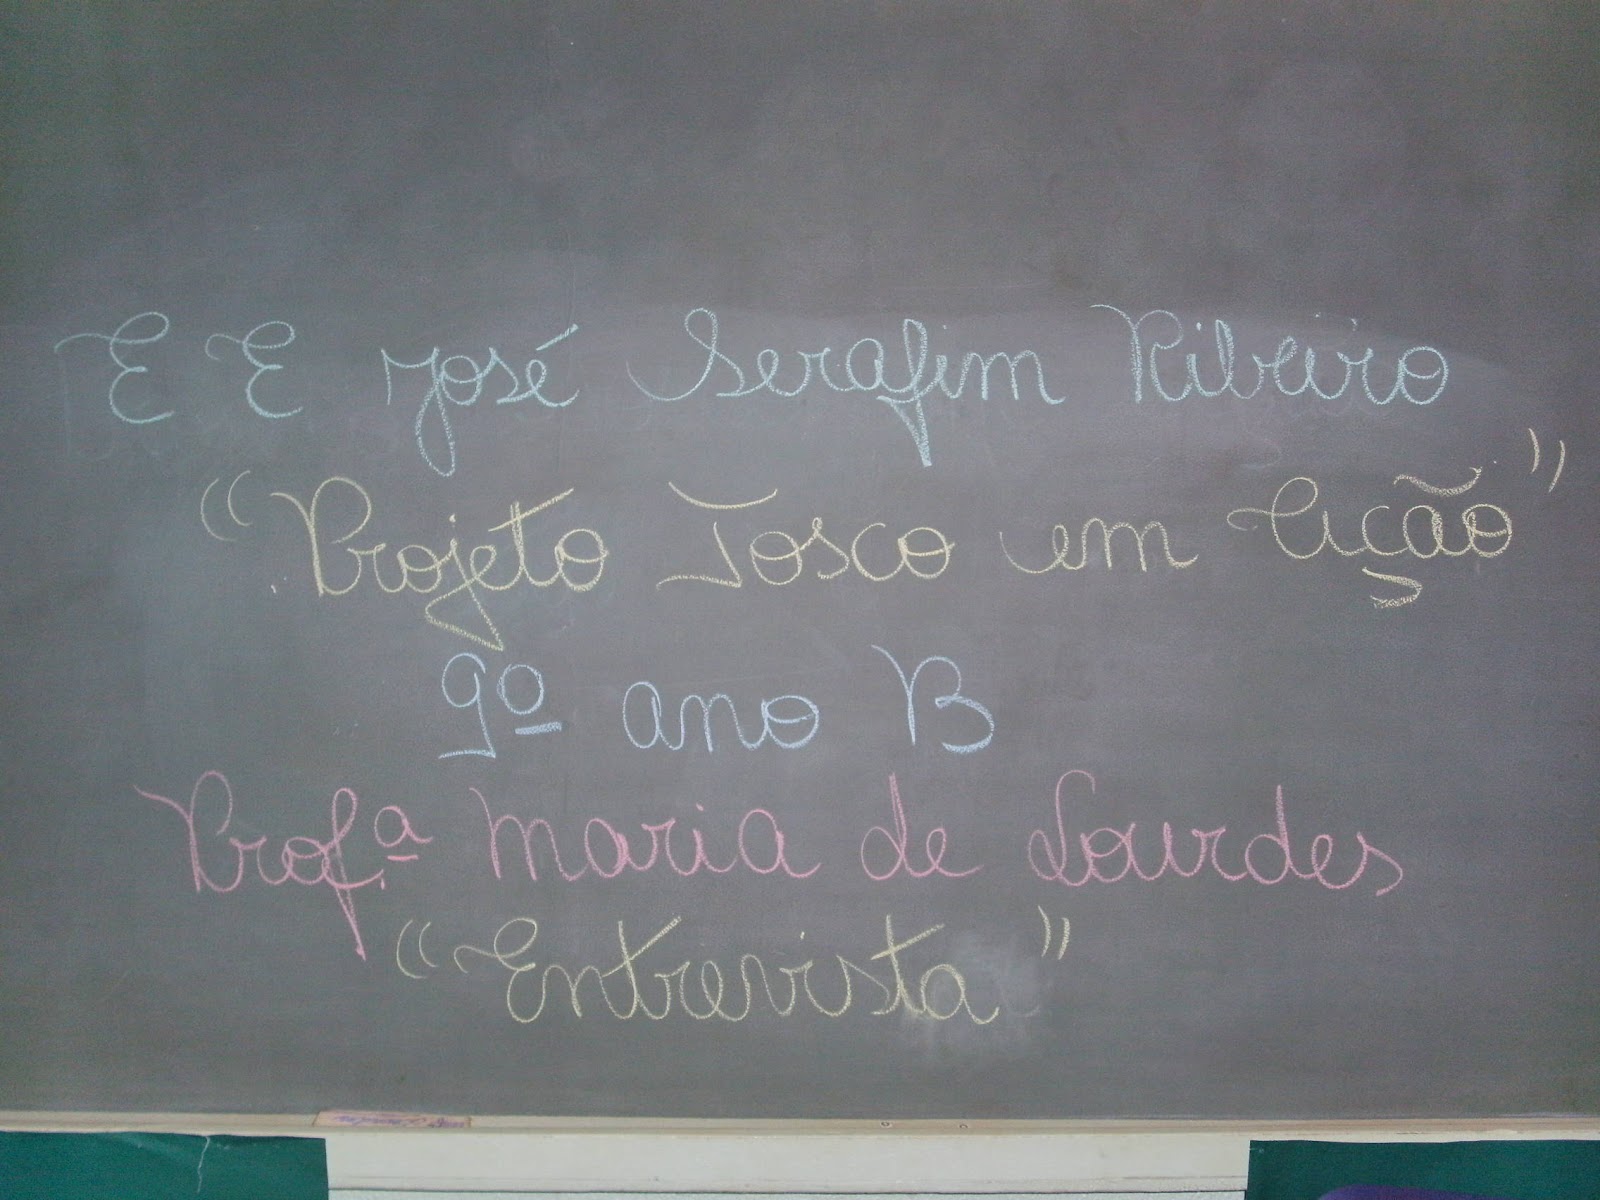 E E José Serafim Ribeiro
"Projeto Tosco em Ação"
9º ano B
Prof.ª Maria de Lourdes
"Entrevista"